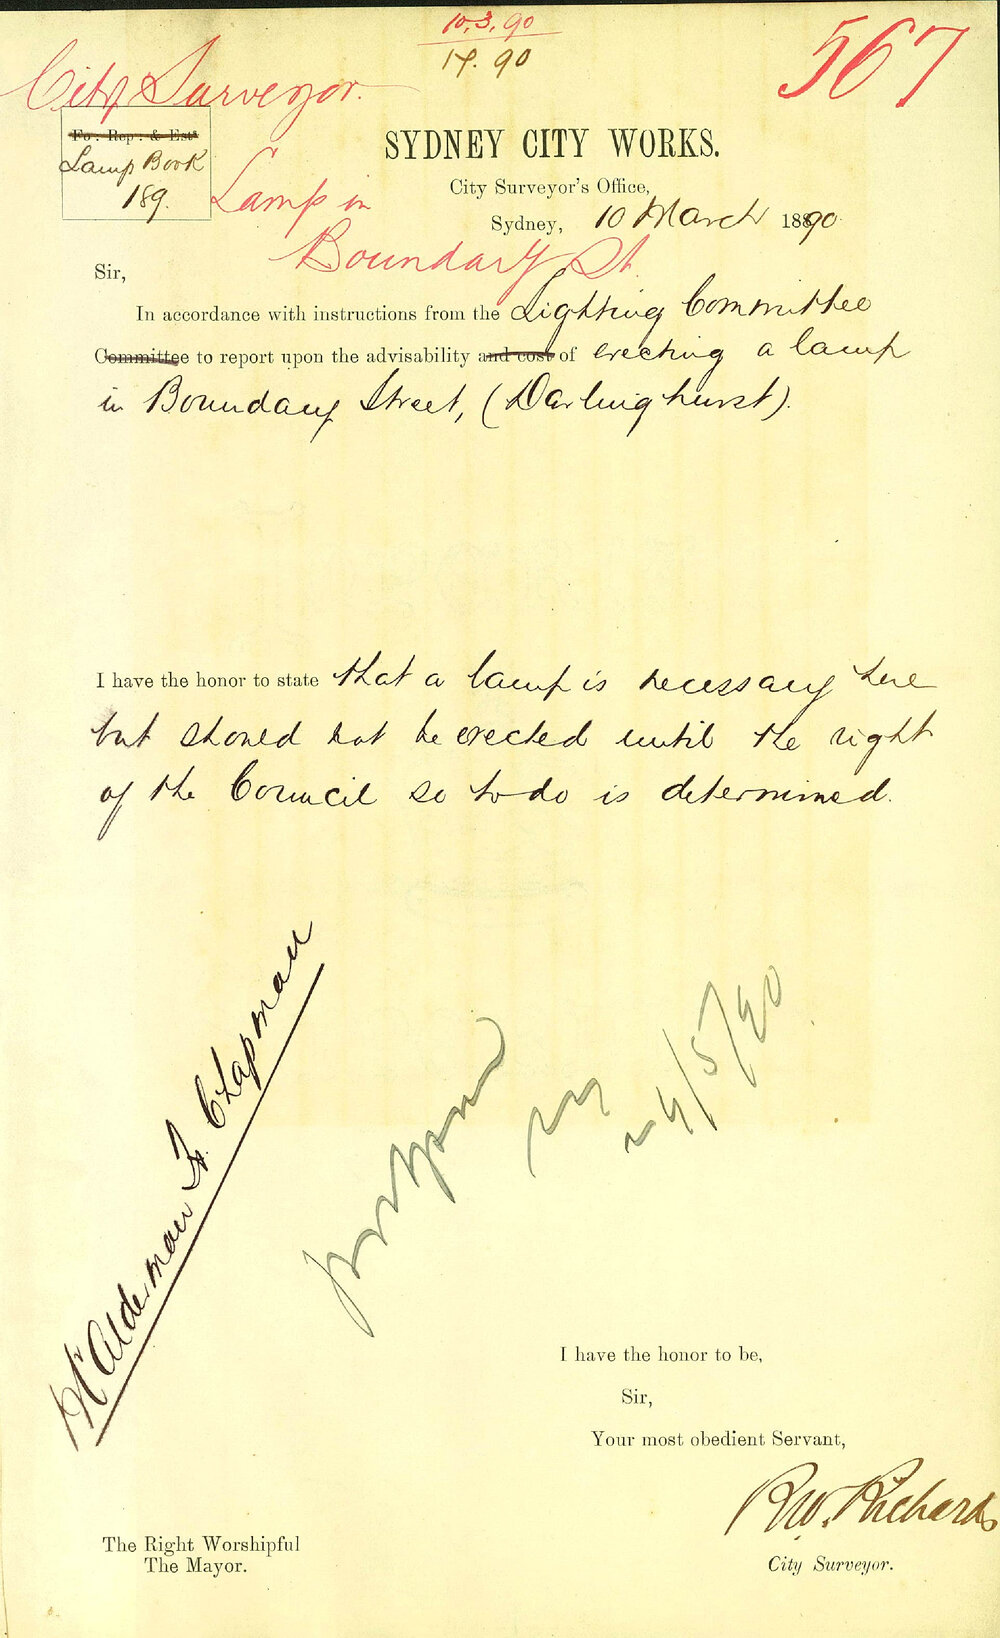 10.3.90
567
14.90
City Surveyor.
Fo: Rep: & Est
Lamp Book
189.
SYDNEY CITY WORKS.
City Surveyor's Office,
Lamp in
Sydney, 10 March 1890
Boundary St
Sir,
In accordance with instructions from the Lighting Committee
Committee to report upon the advisability and cost of erecting a lamp
in Boundary Street, (Darlinghurst).
I have the honor to state that a lamp is necessary here
but should not be erected until the right
of the Council so to do is determined.
Alderman Chapman
5/90
I have the honor to be,
Sir,
Your most obedient Servant,
R.W. Richards
City Surveyor.
The Right Worshipful
The Mayor.